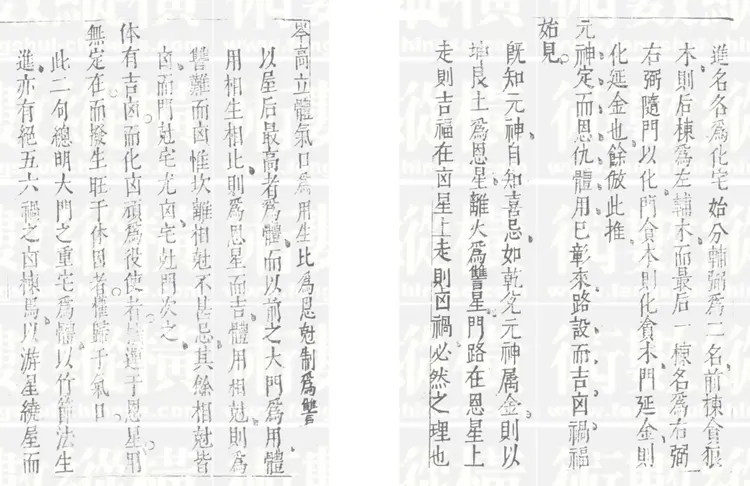 進名各爲化宅始分輔弼爲二名前棟貪狼
木則后棟爲左輔木而最后一棟名爲右弼
右弼隨門以化門貪木則化貪木門延金則
化延金也餘倣此推
元神定而恩仇體用已彰來路設而吉凶禍福
始見
既知元神自知喜忌如乾兌元神属金則以
坤艮土爲恩星離火爲讐星門路在恩星上
走則吉福在凶星上走則凶禍必然之理也
岑高立體氣口爲用生比爲恩尅制爲讐
以屋后最高者爲體而以前之大門爲用體
用相生相比則爲恩星而吉體用相尅則爲
讐難而凶惟坎離相尅不甚忌其餘相尅皆
凶而門尅宅尤凶宅尅門次之
体有吉凶而化凶頑爲役使者權運于恩星用
無定在而撥生旺于休囚者惟歸于氣口
此二句總明大門之重宅爲體以竹節法生
進亦有絕五六禍之凶棟焉以游星繞屋而